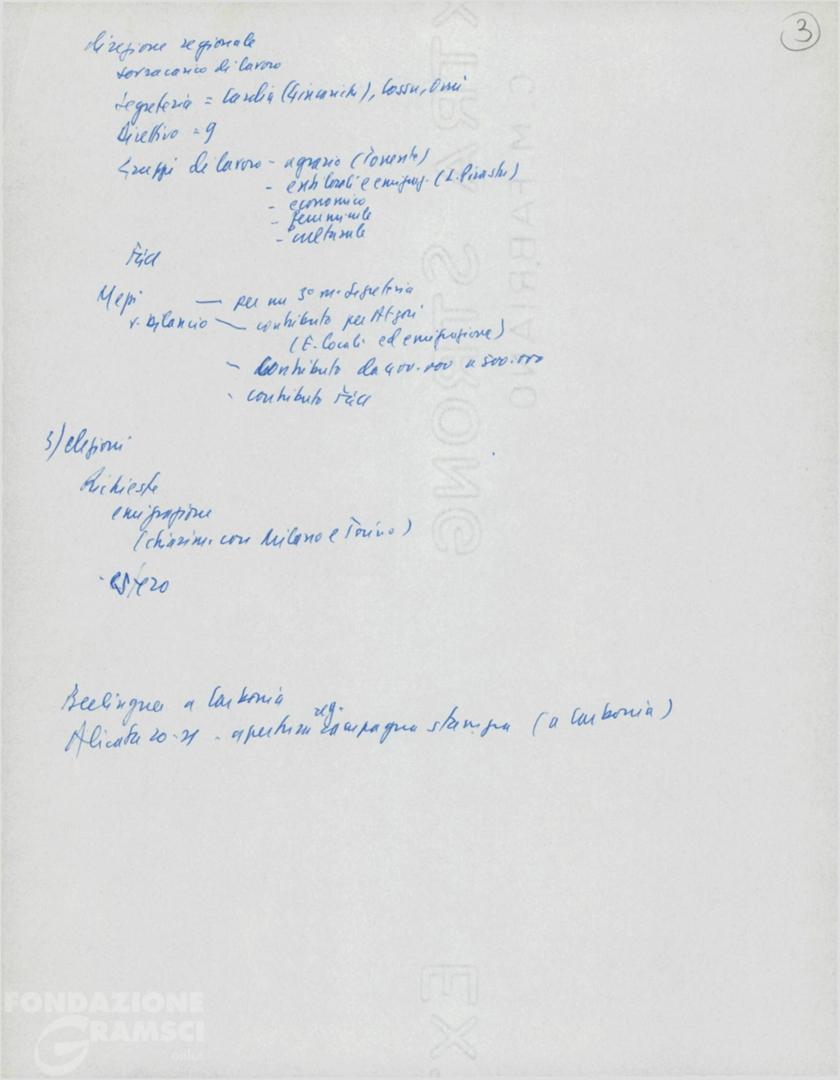 3
direzione regionale
sovracarico di lavoro
Segreteria = Cardia (), Cossu, Orrù
Direttivo = 9
Gruppi di lavoro - agrario (Torrente)
- enti locali e emigraz. (L. Pirastu)
- economico
- femminile
- culturale
Mezzi — per un 3° m. Segreteria
v. bilancio — contributo per
(E. locali ed emigrazione)
- contributo da 400.000 a 500.000
- contributo
3) elezioni
Richieste
emigrazione
(chiarim. con Milano e Torino)
- estero
Berlinguer a Carbonia
Alicata 20-21 - apertura reg. campagna stampa (a Carbonia)
EXTRA STRONG
C.M. FABRIANO
EX
FONDAZIONE
GRAMSCI
onlus